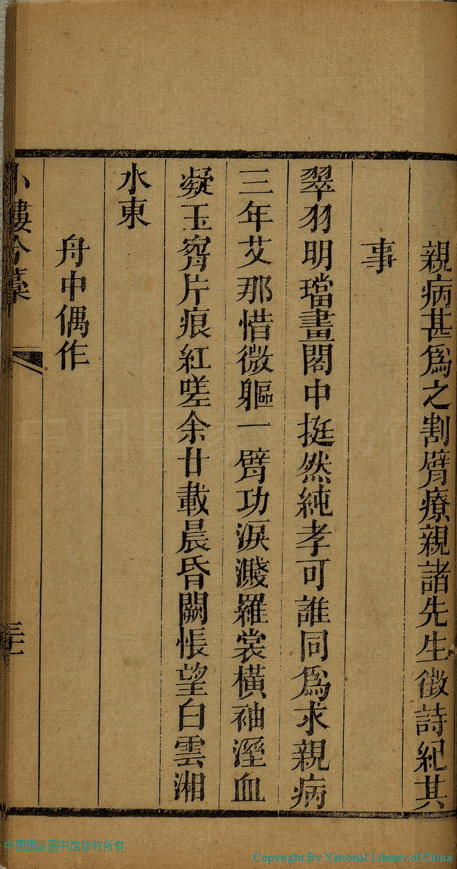 親病甚爲之割臂療親諸先生徵詩紀其
事
翠羽明璫畫閣中挺然純孝可誰同爲求親病
三年艾那惜微軀一臂功淚濺羅裳橫袖溼血
凝玉臠片痕紅嗟余廿載晨昏闕悵望白雲湘
水東
舟中偶作
小樓吟藁
中國國家圖書館版權所有
Copyright By National Library of China